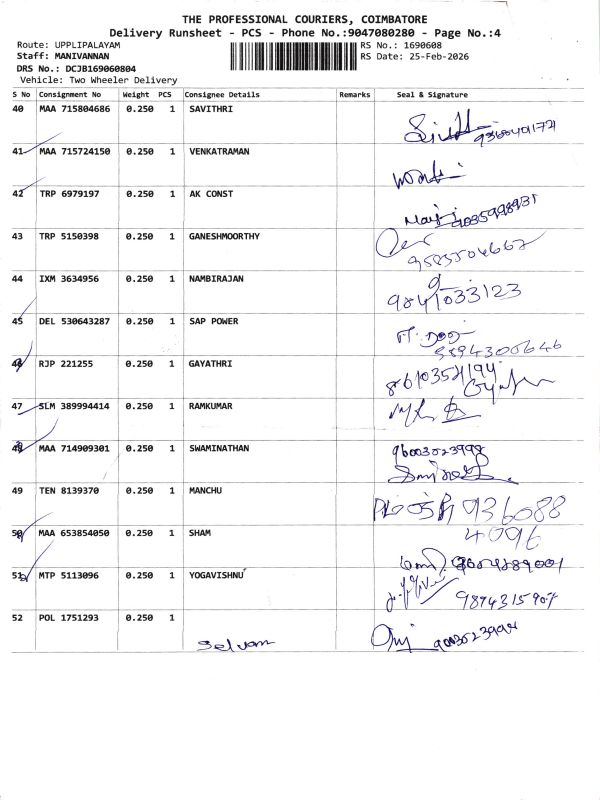 THE PROFESSIONAL COURIERS, COIMBATORE
Delivery Runsheet - PCS - Phone No.:9047080280 - Page No.:4
Route: UPPLIPALAYAM
Staff: MANIVANNAN
DRS No.: DCJB169060804
Vehicle: Two Wheeler Delivery
RS No.: 1690608
RS Date: 25-Feb-2026
S No Consignment No Weight PCS Consignee Details Remarks Seal & Signature
40 MAA 715804686 0.250 1 SAVITHRI
41 MAA 715724150 0.250 1 VENKATRAMAN
42 TRP 6979197 0.250 1 AK CONST
43 TRP 5150398 0.250 1 GANESHMOORTHY
44 IXM 3634956 0.250 1 NAMBIRAJAN 9841033123
45 DEL 530643287 0.250 1 SAP POWER
46 RJP 221255 0.250 1 GAYATHRI
47 SLM 389994414 0.250 1 RAMKUMAR
48 MAA 714909301 0.250 1 SWAMINATHAN
49 TEN 8139370 0.250 1 MANCHU 936088
4096
50 MAA 653854050 0.250 1 SHAM
51 MTP 5113096 0.250 1 YOGAVISHNU
52 POL 1751293 0.250 1 Selvam